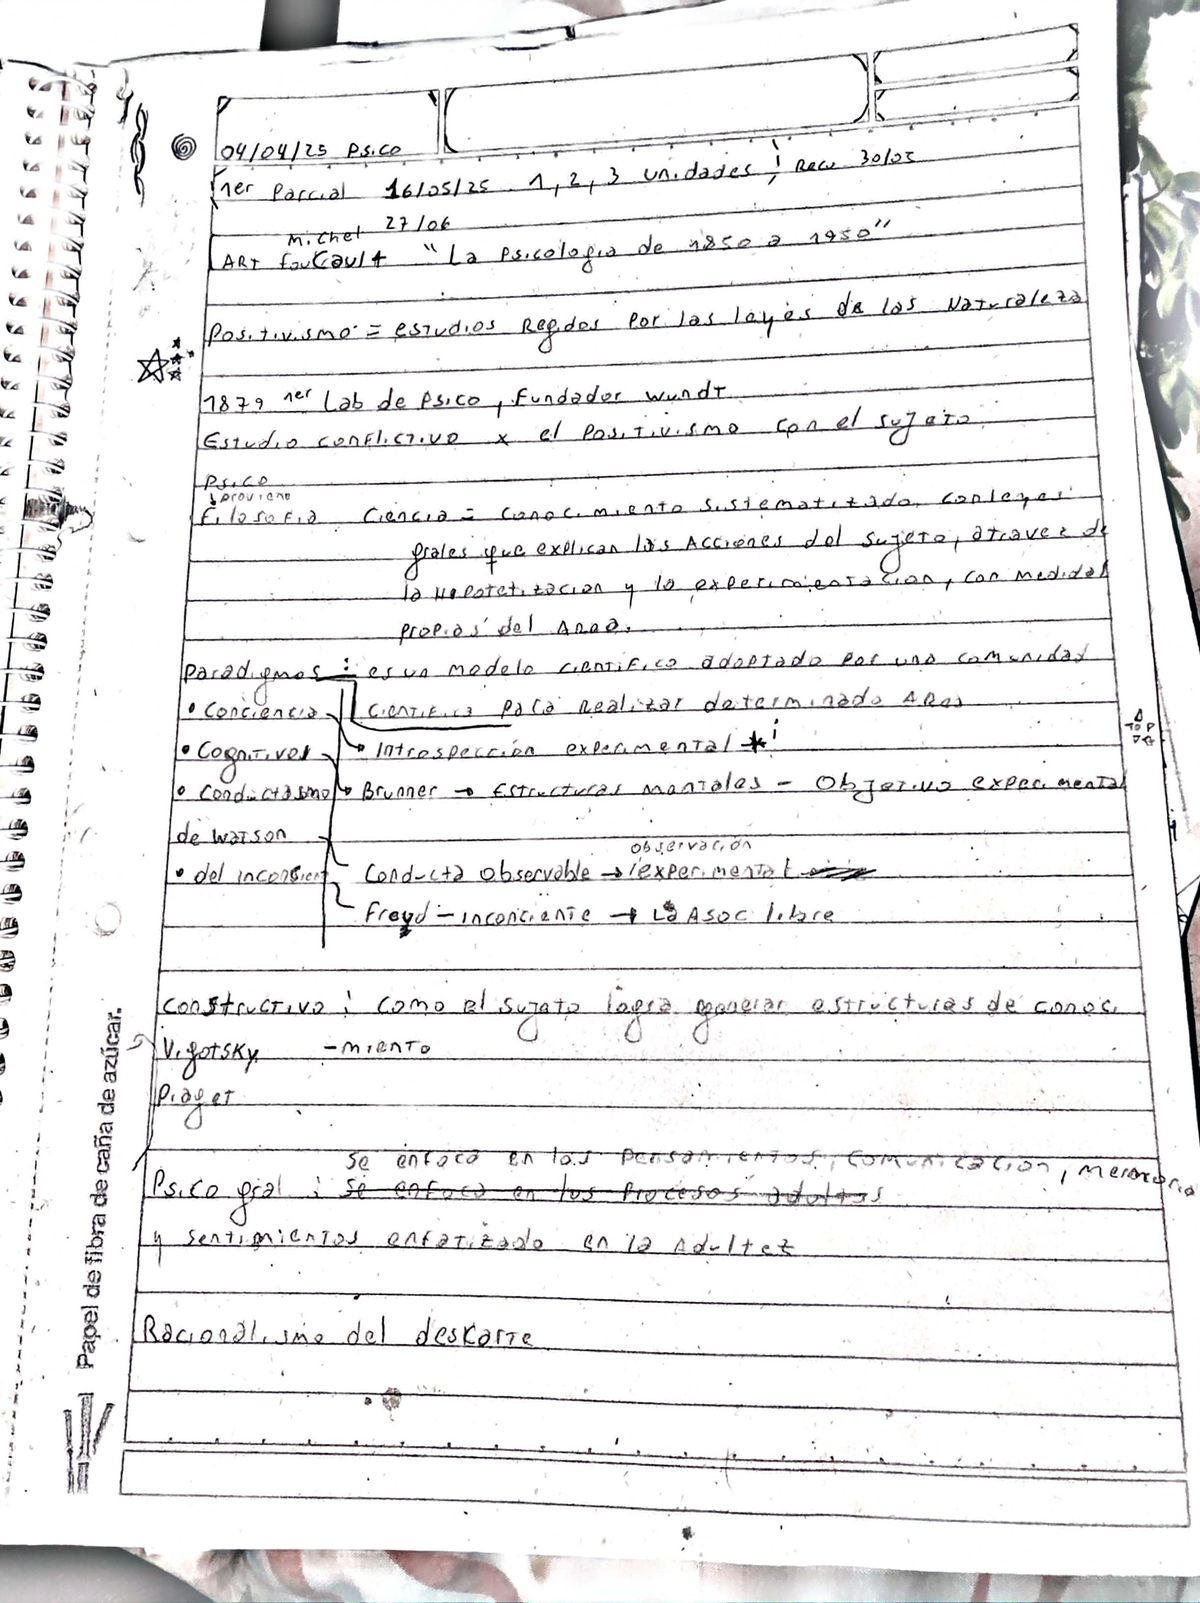 04/04/25 Psico
1er Parcial 16/05/25 . 1, 2, 3 unidades ; Recu 30/05
27/06
Michel
ART foucault "La Psicologia de 1850 a 1950"
Positivismo = estudios Regidos Por las leyes de las Naturaleza
1879 1er Lab de Psico, fundador wundt
Estudio conflictivo x el Positivismo con el sujeto
Psico
↓ proviene
filosofia Ciencia = conocimiento sistematizado con leyes
grales que explican las Acciones del sujeto, atravez de
la Hipotetizacion y la experimentacion, con medidas
propias del Area.
Paradigmas : es un modelo cientifico adoptado por una comunidad
• Conciencia cientifica para Realizar determinado Area
• Cognitivel Introspección experimental *
• Conductismo Brunner → Estructuras mentales - Objetivo experimental
de Watson
observación
• del inconsien Conducta Observable → experimental
Freud - inconciente → La Asoc libre
constructivo : como el sujeto logra generar estructuras de conoci
Vigotsky -miento
Piaget
se enfoca en los Pensamientos, comunicacion, memoria
Psico gral : se enfoca en los Procesos adultos
y sentimientos enfatizado en la Adultez
Racionalismo del deskarte
TOP
Papel de fibra de caña de azúcar.